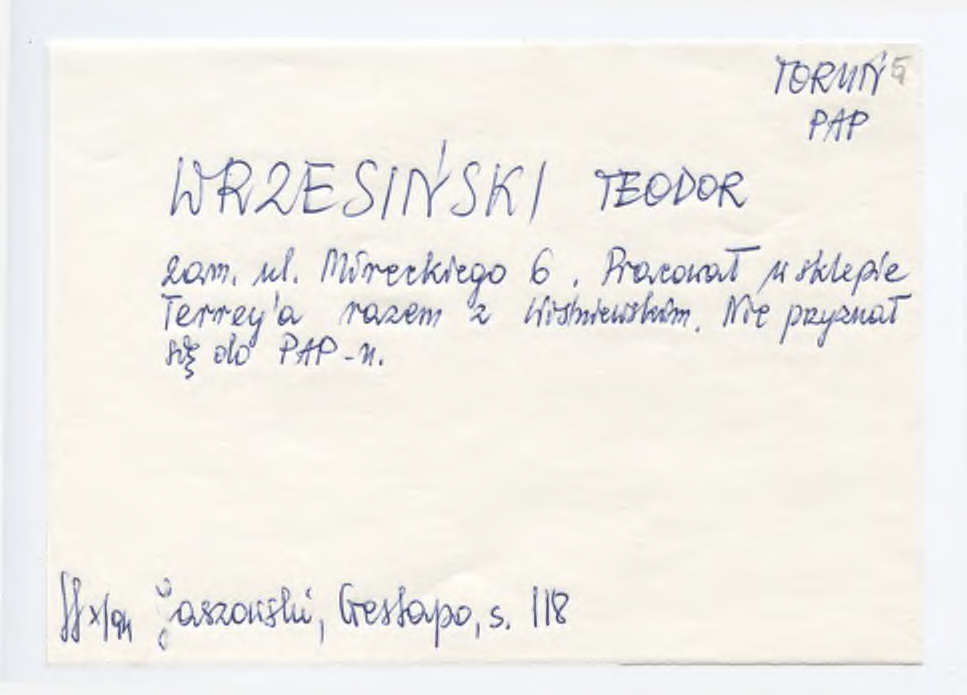 TORUŃ 5
PAP
WRZESIŃSKI TEODOR
zam. ul. Mireckiego 6. Pracował w sklepie
Terrey'a razem z Wiśniewskim. Nie przyznał
się do PAP-u.
x/94 Jaszowski, Gestapo, s. 118